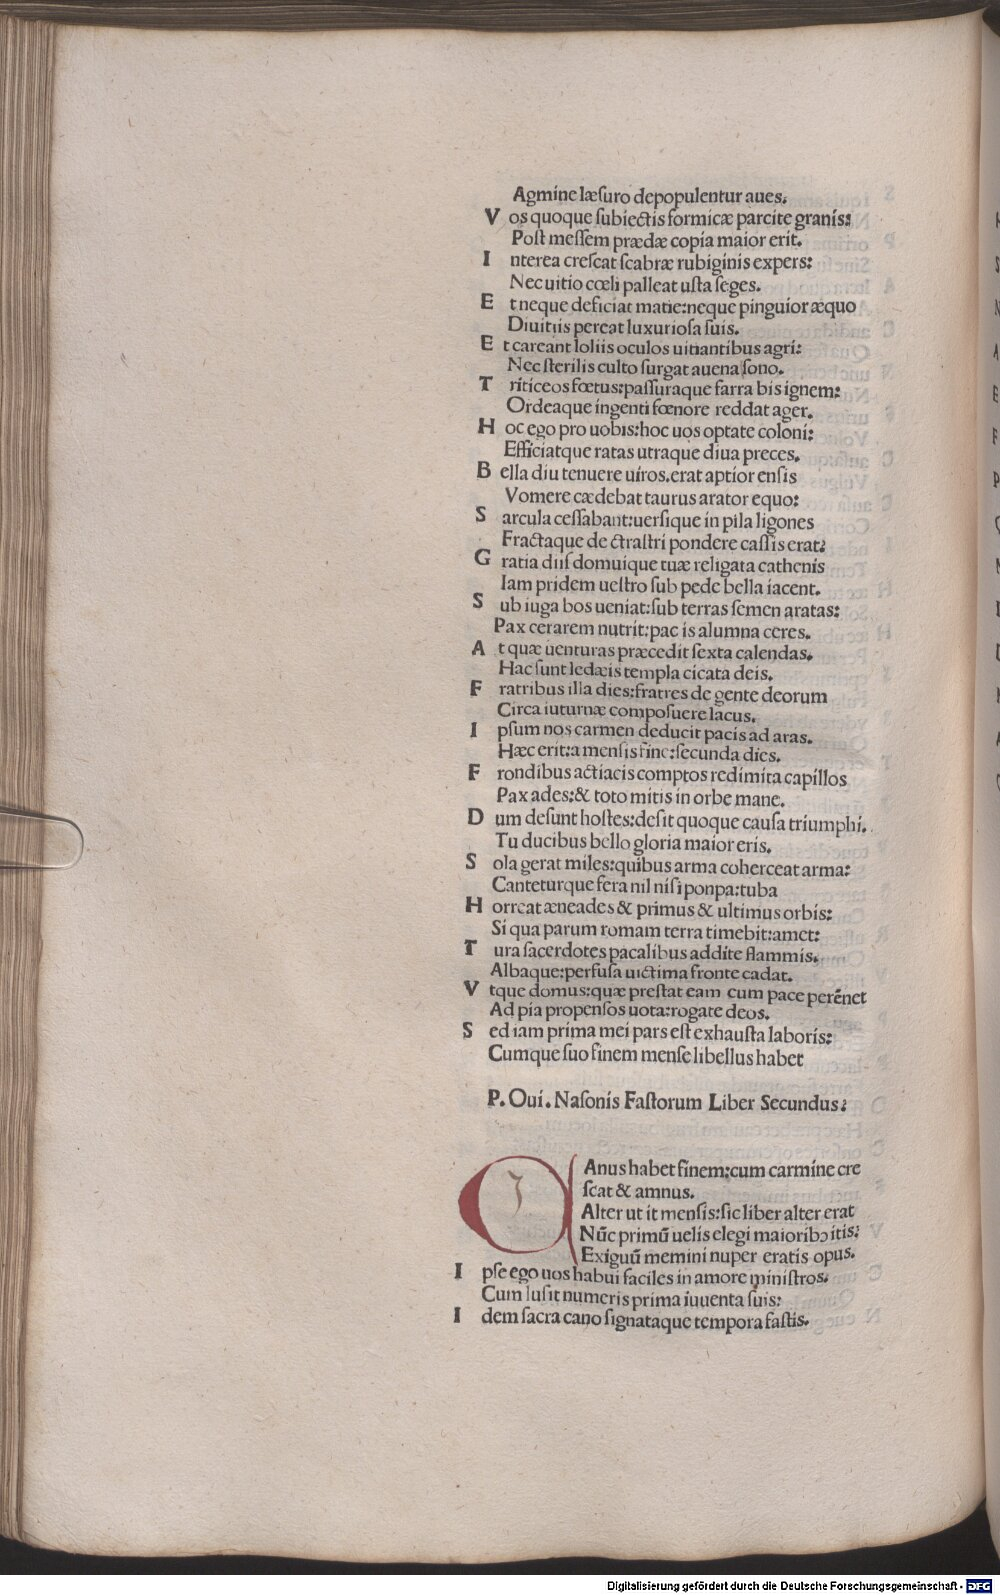 Agmine læſuro depopulentur aues.
V os quoque ſubiectis formicæ parcite granis:
Poſt meſſem prædæ copia maior erit.
I nterea creſcat ſcabræ rubiginis expers:
Nec uitio cœli palleat uſta ſeges.
E t neque deficiat matie:neque pinguior æquo
Diuitiis pereat luxurioſa ſuis.
E t careant loliis oculos uitiantibus agri:
Nec ſterilis culto ſurgat auena ſono.
T riticeos fœtus:paſſuraque farra bis ignem:
Ordeaque ingenti fœnore reddat ager.
H oc ego pro uobis:hoc uos optate coloni:
Efficiatque ratas utraque diua preces.
B ella diu tenuere uiros.erat aptior enſis
Vomere cædebat taurus arator equo:
S arcula ceſſabant:uerſique in pila ligones
Fractaque de ctraſtri pondere caſſis erat:
G ratia diis domuique tuæ religata cathenis
Iam pridem ueſtro ſub pede bella iacent.
S ub iuga bos ueniat:ſub terras ſemen aratas:
Pax cerarem nutrit:pac is alumna ceres.
A t quæ uenturas præcedit ſexta calendas.
Hac ſunt ledæis templa cicata deis.
F ratribus illa dies:fratres de gente deorum
Circa iuturnæ compoſuere lacus.
I pſum nos carmen deducit pacis ad aras.
Hæc erit:a menſis fine:ſecunda dies.
F rondibus actiacis comptos redimita capillos
Pax ades:& toto mitis in orbe mane.
D um deſunt hoſtes:deſit quoque cauſa triumphi.
Tu ducibus bello gloria maior eris.
S ola gerat miles:quibus arma coherceat arma:
Canteturque fera nil niſi ponpa:tuba
H orreat æneades & primus & ultimus orbis:
Si qua parum romam terra timebit:amet:
T ura ſacerdotes pacalibus addite flammis.
Albaque:perfuſa uictima fronte cadat.
V tque domus:quæ preſtat eam cum pace perēnet
Ad pia propenſos uota:rogate deos.
S ed iam prima mei pars eſt exhauſta laboris:
Cumque ſuo finem menſe libellus habet
P. Oui. Naſonis Faſtorum Liber Secundus:
Anus habet finem:cum carmine cre
ſcat & amnus.
Alter ut it menſis:ſic liber alter erat
Nūc primū uelis elegi maioribꝰ itis:
Exiguū memini nuper eratis opus.
I pſe ego uos habui faciles in amore miniſtros.
Cum luſit numeris prima iuuenta ſuis:
I dem ſacra cano ſignataque tempora faſtis.
Digitalisierung gefördert durch die Deutsche Forschungsgemeinschaft - DFG